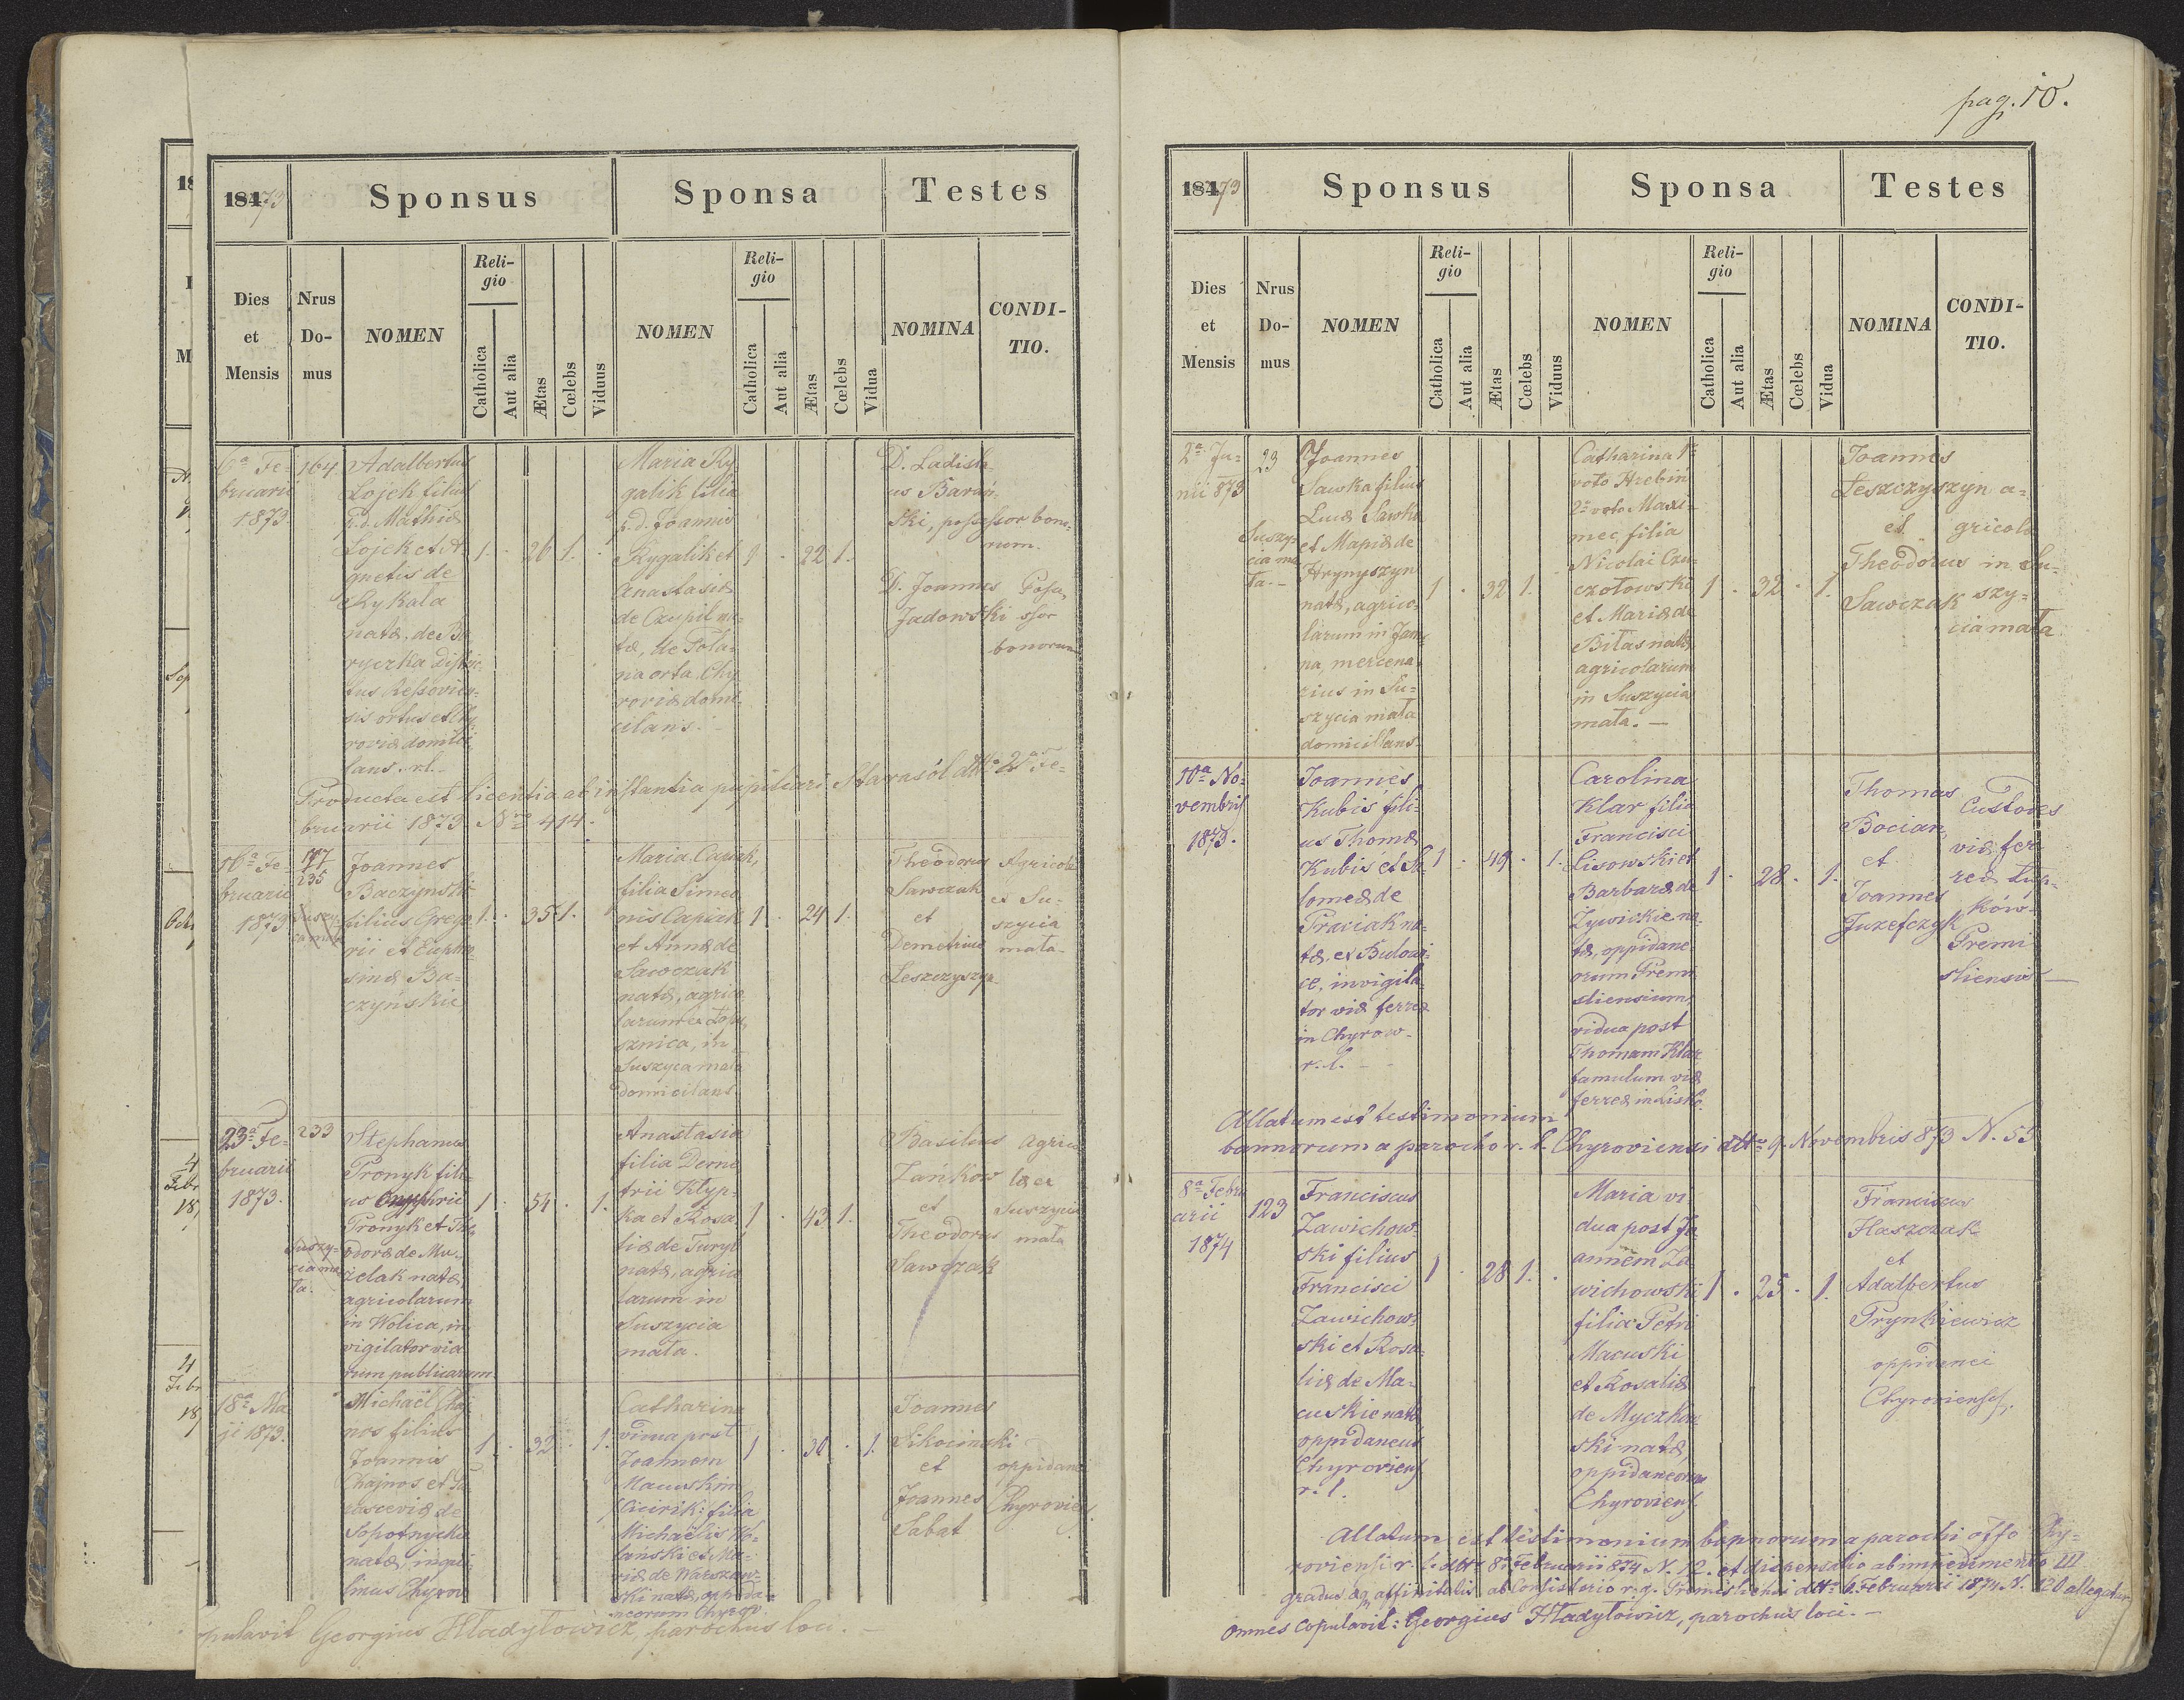 184 73
Sponsus
Sponsa
Testes
Dies
et
Mensis
Nrus
Do-
mus
NOMEN
Reli-
gio
Catholica
Aut alia
Ætas
Cœlebs
Viduus
NOMEN
Reli-
gio
Catholica
Aut alia
Ætas
Cœlebs
Vidua
NOMINA
CONDI-
TIO.
6ª Fe-
bruarii
1873
164
Adalbertus
Łojek filius
Mathiæ
Łojek et A-
gnetis de
Chykała
natæ, de Bo
ryczka distric
tus
sis ortus et Chy
roviæ domici
lans. r.l.
1. · 26 1. ·
Maria Ry
galik filia
Joannis
Rygalik et
Anastasiæ
de Czupil na-
tæ, de Pola-
na orta, Chy
roviæ domi-
cilans.
1 · 22 1.
D. Ladisla-
us Barań-
ski, possessor bono-
rum.
D. Joannes
Jadowski
Posse-
ssor
bonorum
Producta est licentia ab instantia pupillari Starasól dtto 2ª Fe-
bruarii 1873 Nro 414.
16ª Fe-
bruarii
1873
235
Joannes
Baczynski
filius Grego
rii et Euphro
sinæ Ba-
czyńskie
1. · 35 1.
Maria Capiak,
filia Simeo
nis Capiak
et Annæ de
Sawczak
natæ, agrico
larum ex
sznica, in
Suszyca mała
domicilans.
1 · 24 1.
Theodorus
Sawczak
et
Demetrius
Leszczyszyn
Agricolæ
ex Su-
szycia
mała
23ª Fe-
bruarii
1873.
233
Suszy-
cia ma
ła.
Stephanus
Pronyk fili-
us Onyphrii
Pronyk et The
odoræ de Mu-
zelak natæ,
agricolarum
in Wolica, in
vigilator via
rum publicarum
1 · 54 · 1.
Anastasia
filia Deme
trii Kłyp-
ka et Rosa-
liæ de Turył
natæ, agrico
larum in
Suszycia
mała.
1 · 43 1.
Basilius
Zańkow
et
Theodorus
Sawczak
Agrico
læ ex
Suszycia
mała
18ª Ma
ji 1873.
Michaël Chaj
nos filius
Joannis
Chajnos et Pa
rascevia de
Sopotnycka
natæ, inqui-
linus Chyrov
1. · 32 · 1.
Catharina
vidua post
Joannem
Macuskim
filia
Michaëlis
łański et Ma-
riæ de Warszaw-
ski natæ, oppida-
neorum Chyrov.
1 · 30 · 1.
Joannes
Sikocinski
et
Joannes
Sabat
oppidanei
Chyrovien.
pulavit Georgius Hładyłowicz, parochus loci. —
pag. 10.
184 73
Sponsus
Sponsa
Testes
Dies
et
Mensis
Nrus
Do-
mus
NOMEN
Reli-
gio
Catholica
Aut alia
Ætas
Cœlebs
Viduus
NOMEN
Reli-
gio
Catholica
Aut alia
Ætas
Cœlebs
Vidua
NOMINA
CONDI-
TIO.
2ª Ju-
nii 873
23
Suszy-
cia ma
ła.-
Joannes
Sawka filius
Lucæ Sawka
et Mariæ de
Hrynyszyn
natæ, agrico-
larum in
na, mercena-
rius in Su-
szycia mała
domicilans.
1 · 32 1.
Catharina 1º
voto Hrebin
2º voto Maxi-
mec, filia
Nicolai Czu-
czołowski
et Mariæ de
Biłas natæ,
agricolarum
in Suszycia
mała. —
1 · 32 · 1.
Joannes
Leszczyszyn
et
Theodorus
Sawczak
a-
gricolæ
in Su-
szy-
cia mała
10ª No-
vembris
1873.
Joannes
Kubis fili-
us Thomæ
Kubis et Sa-
lomeæ de
Praciak na-
tæ, ex
ce, invigila
tor viæ ferreæ
in Chyrow.
r.l. —
1 · 49 · 1.
Carolina
Klar filia
Francisci
Lisowski et
Barbaræ de
Zywickie na-
tæ, oppidane
orum Premi
sliensium,
vidua post
Thomam Klar
famulum viæ
ferreæ in Lisko.
1 · 28 · 1.
Thomas
Bocian,
et
Joannes
Juzefczyk
Custodes
viæ fer
reæ Łup-
ków-
Premi
sliensis —
Allatum est testimonium
bannorum a parocho r. l. Chyroviensi dtto 9. Novembris 873 N. 55
8ª Febru
arii
1874
123
Franciscus
Zawichow-
ski filius
Francisci
Zawichow-
ski et Rosa-
liæ de Ma-
cuskie natæ
oppidaneus
Chyroviens
r. l.
1 · 28 1. ·
Maria vi
dua post Jo
annem Za
wichowski
filia Petri
Macuski
et Rosaliæ
de Myczkow
ski natæ,
oppidaneorum
Chyroviens
1 · 25 · 1.
Franciscus
Haszczak
et
Adalbertus
Prynkiewicz
oppidanei
Chyrovienses.
Allatum est testimonium bannorum a parochi offo Chy-
roviensi r. l. dtto 8ª Februarii 874 N. 12. et dispensatio ab impedimento III
gradus affinitatis ab Consistorio r. g. Premisliensi dtto 6. Februarii 1874 N. 120 allegatur
Omnes copulavit: Georgius Hładyłowicz, parochus loci. —